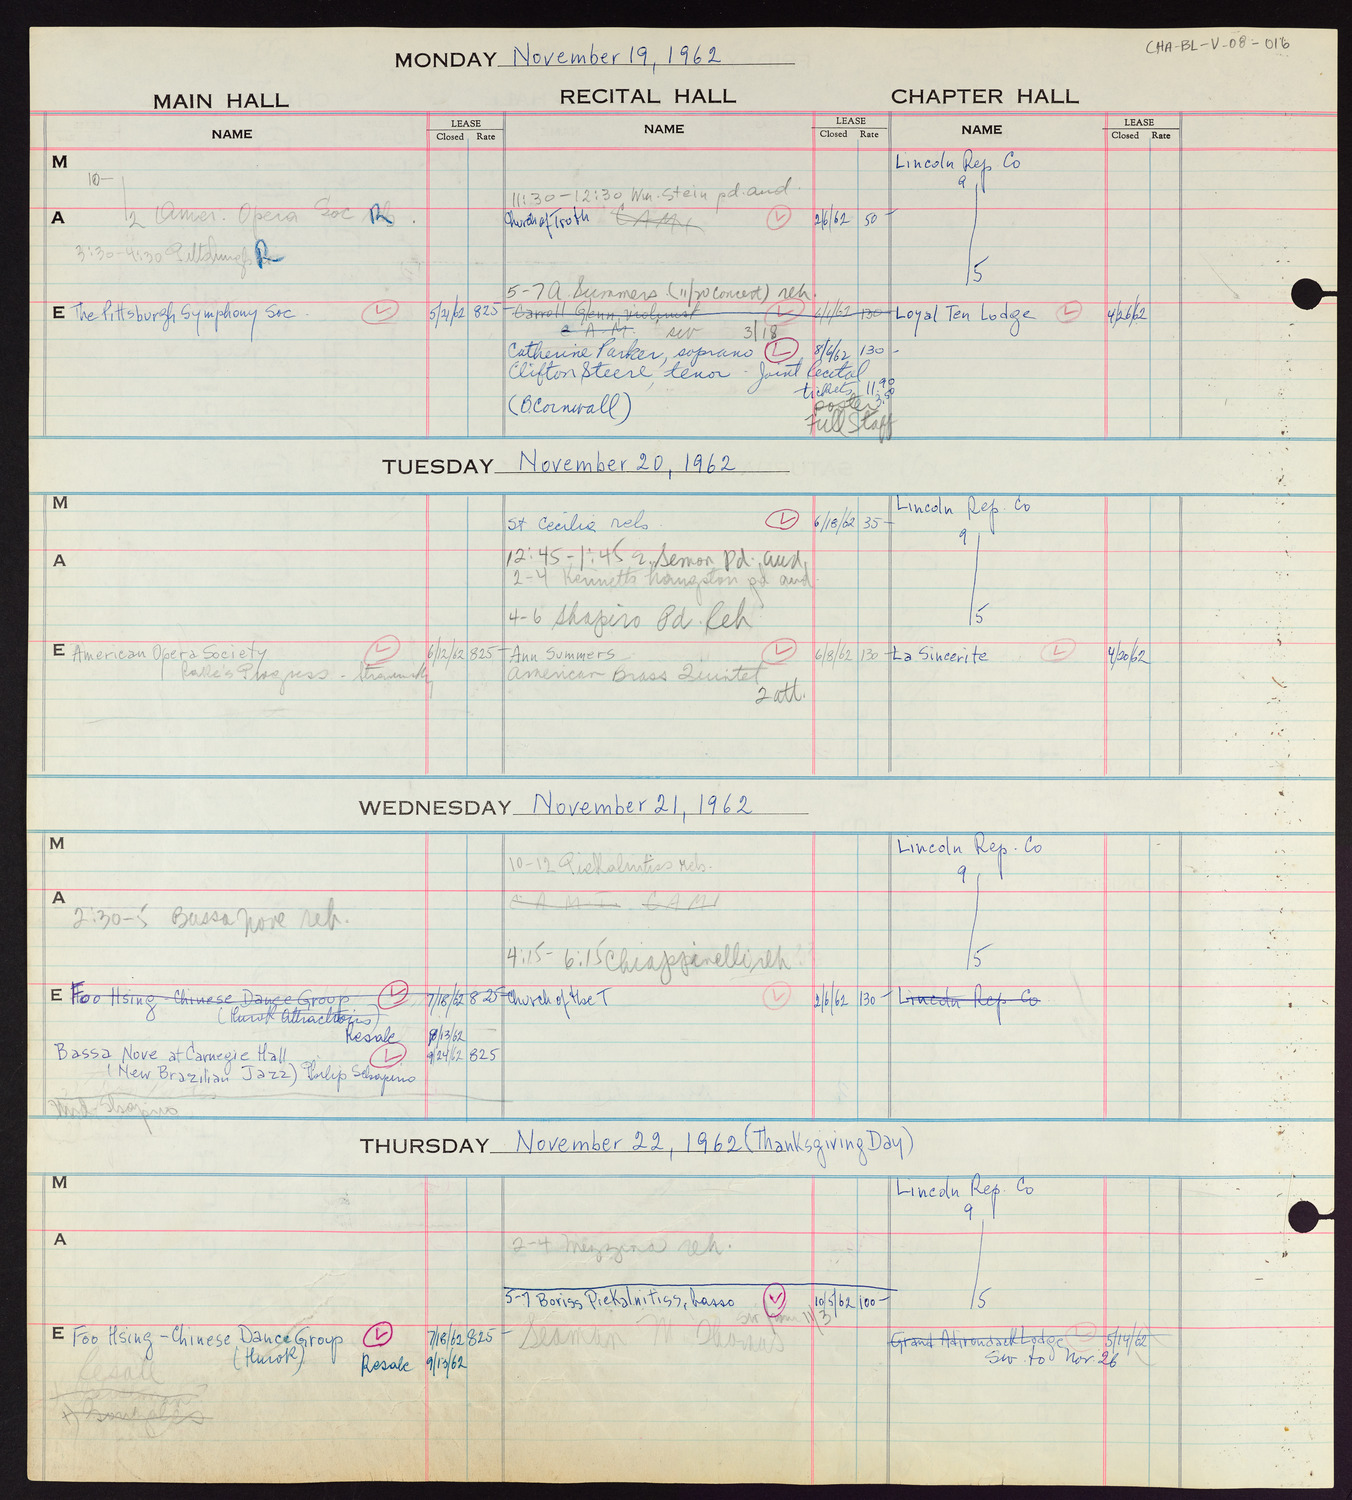 CHA-BL-V-08-016
MONDAY November 19, 1962
MAIN HALL RECITAL HALL CHAPTER HALL
NAME LEASE Closed Rate NAME LEASE Closed Rate NAME LEASE Closed Rate
M Lincoln Rep Co
10- 9
11:30-12:30 Wm. Stein pd. aud.
A 2 Amer. Opera Soc reh. R Church of Truth CAMI L 2/6/62 50-
3:30-4:30 Pittsburgh R
5
5-7 A. Summers (11/20 concert) reh.
E The Pittsburgh Symphony Soc. L 5/21/62 825- Carroll Glenn, violinist L 6/1/62 130- Loyal Ten Lodge L 4/26/62
C A M. sw 3/18
Catherine Parker, soprano L 8/6/62 130-
Clifton Steere, tenor - Joint Recital
tickets 11.90
(B Cornwall) poster 3.50
Full Staff
TUESDAY November 20, 1962
M Lincoln Rep. Co
St Cecilia reh. L 6/18/62 35-
9
A 12:45-1:45 Semon Pd. aud.
2-4 Kenneth Langston pd aud.
4-6 Shapiro Pd. Reh 5
E American Opera Society L 6/12/62 825- Ann Summers L 6/8/62 130- La Sincerite L 4/20/62
Rake's Progress - Stravinsky American Brass Quintet
2 att.
WEDNESDAY November 21, 1962
M Lincoln Rep. Co
10-12 Piekalnitiss reh. 9
A C A M I CAMI
2:30-5 Bassa Nove reh.
4:15-6:15 Chiappinelli reh 5
E Foo Hsing-Chinese Dance Group L 7/18/62 825- Church of the T L 2/6/62 130- Lincoln Rep Co
(Hurok Attractions)
Resale 9/13/62
Bassa Nove at Carnegie Hall L 9/24/62 825
(New Brazilian Jazz)
Shapiro
THURSDAY November 22, 1962 (Thanksgiving Day)
M Lincoln Rep. Co
9
A 2-4 Mezzina reh.
5-7 Boriss Piekalnitiss, basso L 10/5/62 100- 5
sw from 11/3
E Foo Hsing-Chinese Dance Group L 7/18/62 825- Seaman M. Thomas Grand Adirondack Lodge L 5/14/62
(Hurok) Resale 9/13/62 sw. to Nov. 26
Resale